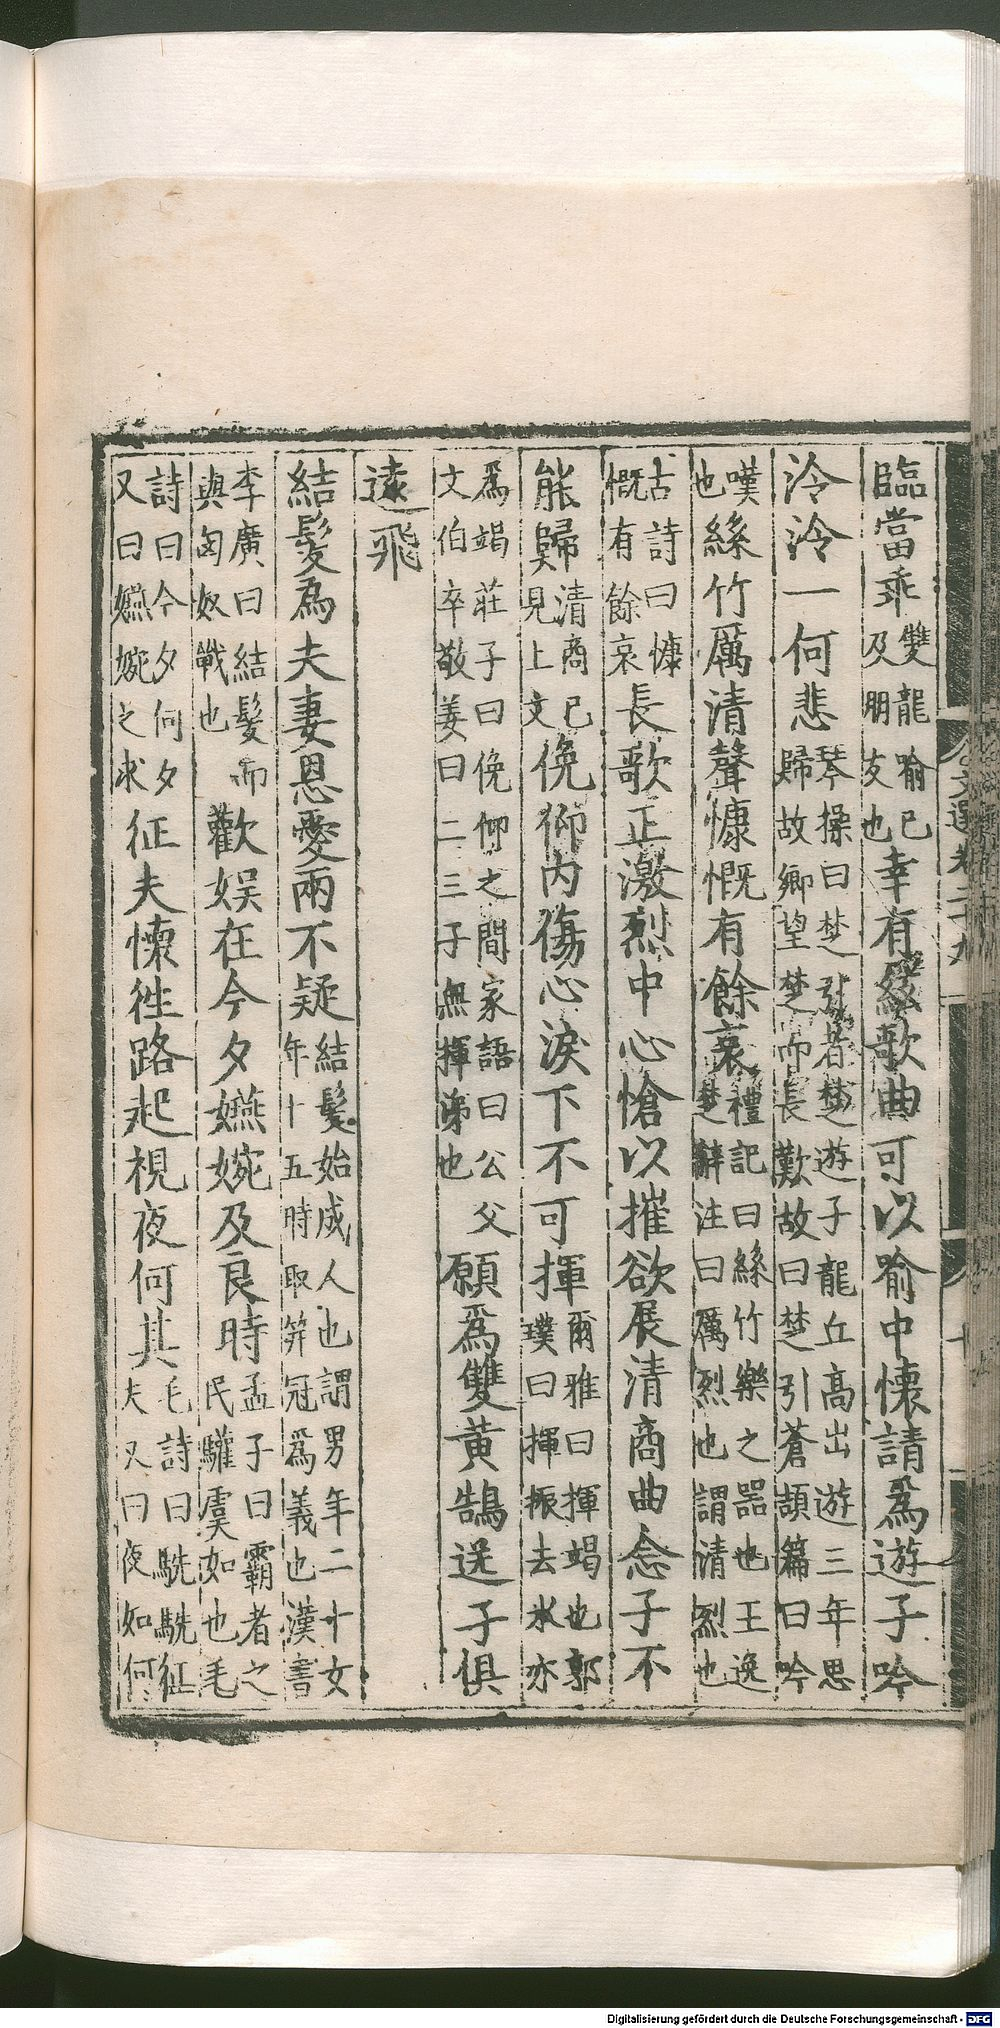 文選卷二十九
臨當乖雙龍喻己及朋友也幸有絃歌曲可以喻中懷請爲遊子吟
泠泠一何悲琴操曰楚引者楚遊子龍丘髙出遊三年思歸故鄉望楚而長歎故曰楚引蒼頡篇曰吟
嘆也絲竹厲清聲慷慨有餘哀禮記曰絲竹樂之器也王逸楚辭注曰厲烈也謂清烈也
古詩曰慷慨有餘哀長歌正激烈中心愴以摧欲展清商曲念子不
能歸清商已見上文俛仰内傷心淚下不可揮爾雅曰揮竭也郭璞曰揮振去水亦
爲竭莊子曰俛仰之間家語曰公父文伯卒敬姜曰二三子無揮涕也願爲雙黃鵠送子俱
遠飛
結髮爲夫妻恩愛兩不疑結髮始成人也謂男年二十女年十五時取筓冠爲義也漢書
李廣曰結髮而與匈奴戰也歡娱在今夕嬿婉及良時孟子曰霸者之民驩虞如也毛
詩曰今夕何夕又曰嬿婉之求征夫懷往路起視夜何其毛詩曰駪駪征夫又曰夜如何
Digitalisierung gefördert durch die Deutsche Forschungsgemeinschaft - DFG